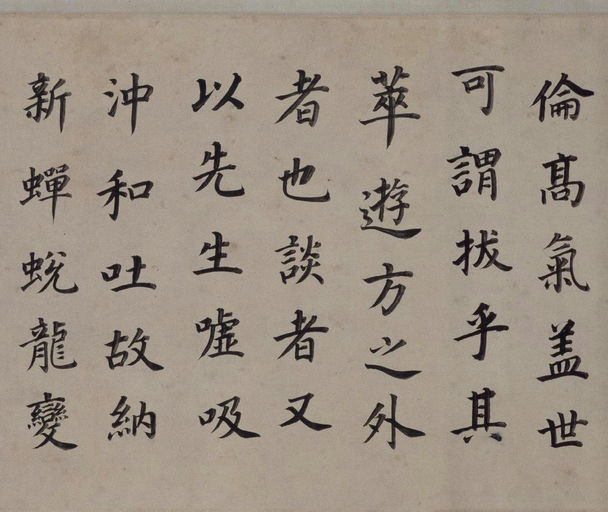 倫高氣盖世
可謂拔乎其
萃遊方之外
者也談者又
以先生噓吸
沖和吐故納
新蟬蛻龍變